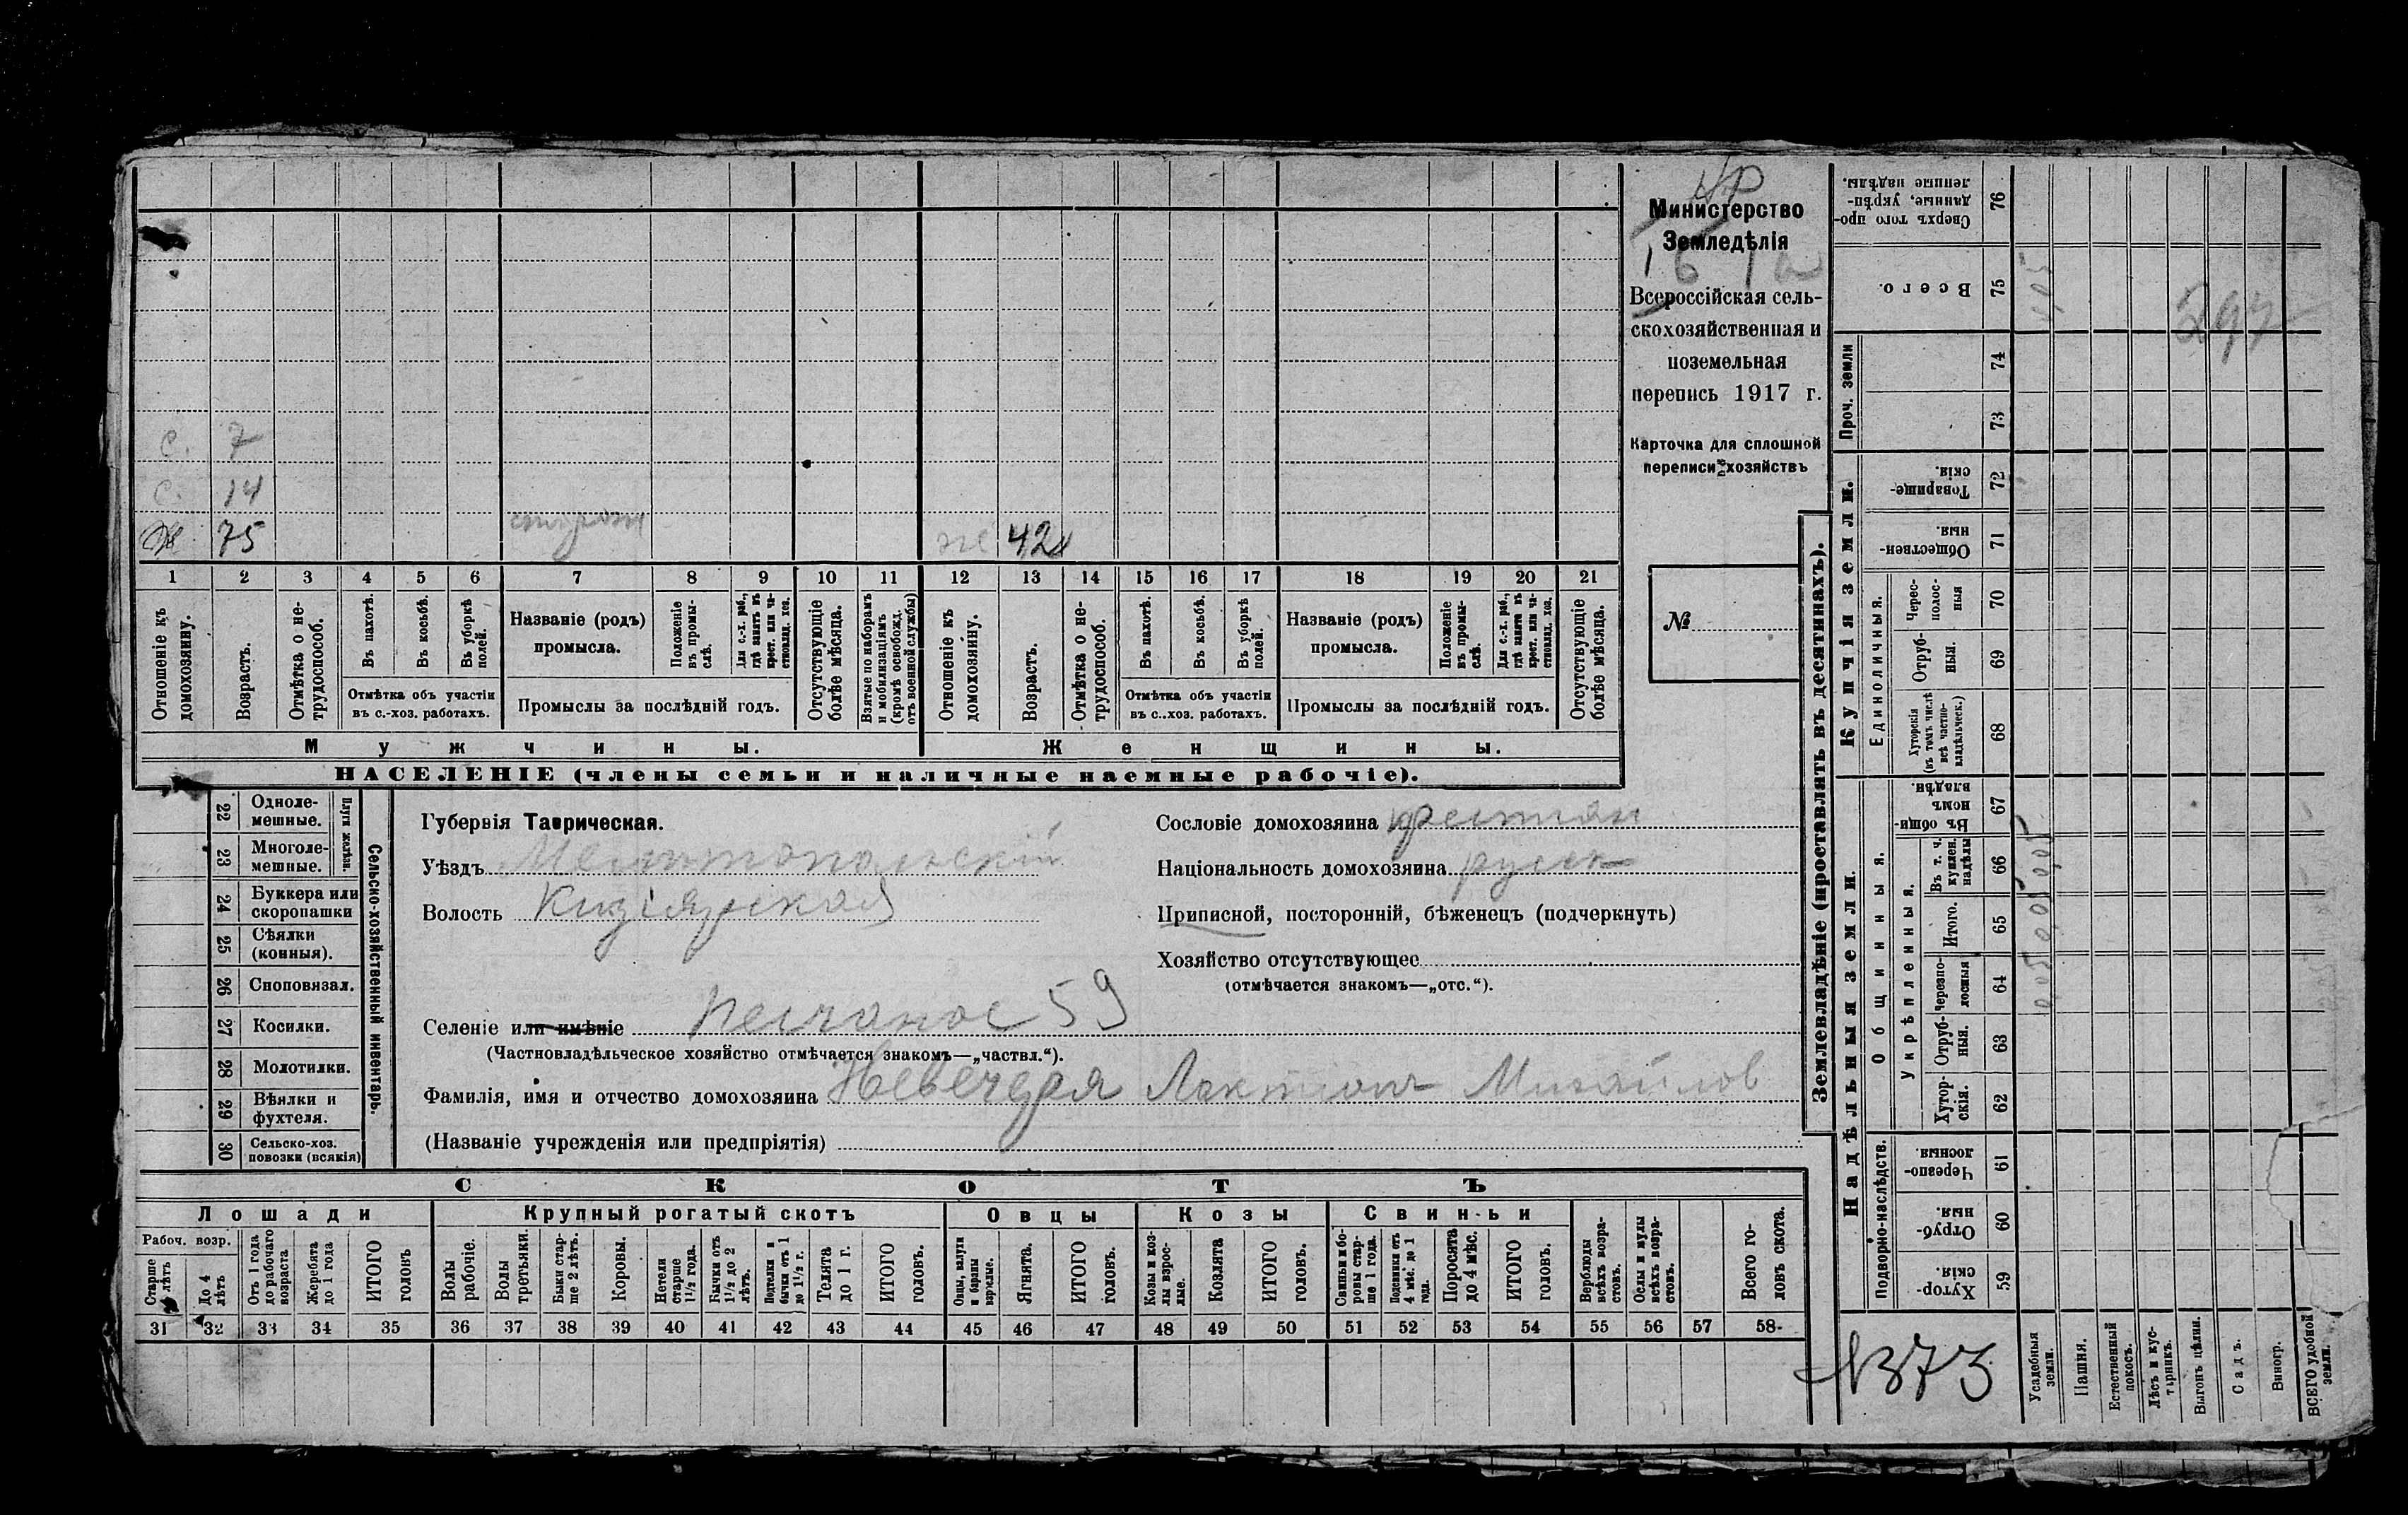 Министерство
Земледѣлія
Всероссійская сель-
скохозяйственная и
поземельная
перепись 1917 г.
Карточка для сплошной
переписи хозяйствъ
№
с. 7
с. 14
75
42
1 2 3 4 5 6 7 8 9 10 11 12 13 14 15 16 17 18 19 20 21
Отношеніе къ домохозяину.
Возрастъ.
Отмѣтка о не-трудоспособ.
Въ пахотѣ.
Въ косьбѣ.
Въ уборкѣ полей.
Отмѣтка объ участіи
въ с.-хоз. работахъ.
Названіе (родъ)
промысла.
Положеніе въ промы-слѣ.
Для с.-х. раб., гдѣ занятъ въ крест. или ча-стновлад. хоз.
Промыслы за послѣдній годъ.
Отсутствующіе болѣе мѣсяца.
Взятые по наборамъ и мобилизаціямъ (кромѣ освобожд. отъ военной службы)
Отношеніе къ домохозяину.
Возрастъ.
Отмѣтка о не-трудоспособ.
Въ пахотѣ.
Въ косьбѣ.
Въ уборкѣ полей.
Отмѣтка объ участіи
въ с.-хоз. работахъ.
Названіе (родъ)
промысла.
Положеніе въ промы-слѣ.
Для с.-х. раб., гдѣ занята въ крест. или ча-стновлад. хоз.
Промыслы за послѣдній годъ.
Отсутствующіе болѣе мѣсяца.
Мужчины.
Женщины.
НАСЕЛЕНІЕ (члены семьи и наличные наемные рабочіе).
Сельско-хозяйственный инвентарь.
Плуги желѣзн.
22 Одноле-мешные.
23 Многоле-мешные.
24 Буккера или скоропашки
25 Сѣялки (конныя).
26 Сноповязал.
27 Косилки.
28 Молотилки.
29 Вѣялки и фухтеля.
30 Сельско-хоз. повозки (всякія)
Губернія Таврическая.
Уѣздъ Мелитопольскій
Волость Кизіярская
Селеніе или имѣніе Песчаное 59
(Частновладѣльческое хозяйство отмѣчается знакомъ—„частвл.“).
Фамилія, имя и отчество домохозяина Невечеря Лактіонъ Михайлов
(Названіе учрежденія или предпріятія)
Сословіе домохозяина крестьян
Національность домохозяина русск
Приписной, посторонній, бѣженецъ (подчеркнуть)
Хозяйство отсутствующее
(отмѣчается знакомъ—„отс.“).
СКОТЪ
Лошади
Крупный рогатый скотъ
Овцы
Козы
Свиньи
Рабоч. возр.
Старше лѣтъ
До 4 лѣтъ
Отъ 1 года до рабочаго возраста
Жеребята до 1 года
ИТОГО головъ
Волы рабочіе.
Волы третьяки.
Быки стар-ше 2 лѣтъ.
Коровы.
Нетели старше 1½ года.
Бычки отъ 1½ до 2 лѣтъ.
Подтелки и бычки отъ 1 до 1½ г.
Телята до 1 г.
ИТОГО головъ.
Овцы, валухи и бараны взрослые.
Ягнята.
ИТОГО головъ.
Козы и коз-лы взрос-лые.
Козлята
ИТОГО головъ.
Свиньи и бо-ровы стар-ше 1 года.
Подсвинки отъ 4 мѣс. до 1 года.
Поросята до 4 мѣс.
ИТОГО головъ.
Верблюды всѣхъ возра-стовъ.
Ослы и мулы всѣхъ возра-стовъ.
Всего го-ловъ скота.
31 32 33 34 35 36 37 38 39 40 41 42 43 44 45 46 47 48 49 50 51 52 53 54 55 56 57 58
Землевладѣніе (проставлять въ десятинахъ).
Сверхъ того про-данные, укрѣп-ленные надѣлы. 76
Всего. 75
Проч. земли 74 73
Купчія земли.
Товарище-скія. 72
Обществен-ныя. 71
Единоличныя.
Черес-полос-ныя 70
Отруб-ныя. 69
Хуторскія (въ томъ числѣ всѣ частно-владѣльческ.) 68
Надѣльныя земли.
Общинныя.
Въ общи-номъ владѣн. 67
Укрѣпленныя.
Въ т. ч. куплен. надѣлы 66
Итого. 65
Черезпо-лосныя 64
Отруб-ныя. 63
Хутор-скія. 62
Подворно-наслѣдств.
Черезпо-лосныя. 61
Отруб-ныя. 60
Хутор-скія. 59
Усадебныя земли.
Пашня.
Естественный покосъ.
Лѣсъ и кус-тарникъ.
Выгонъ цѣлин.
Садъ.
Виногр.
ВСЕГО удобной земли.
0,05
0,05
0,05
597
№373